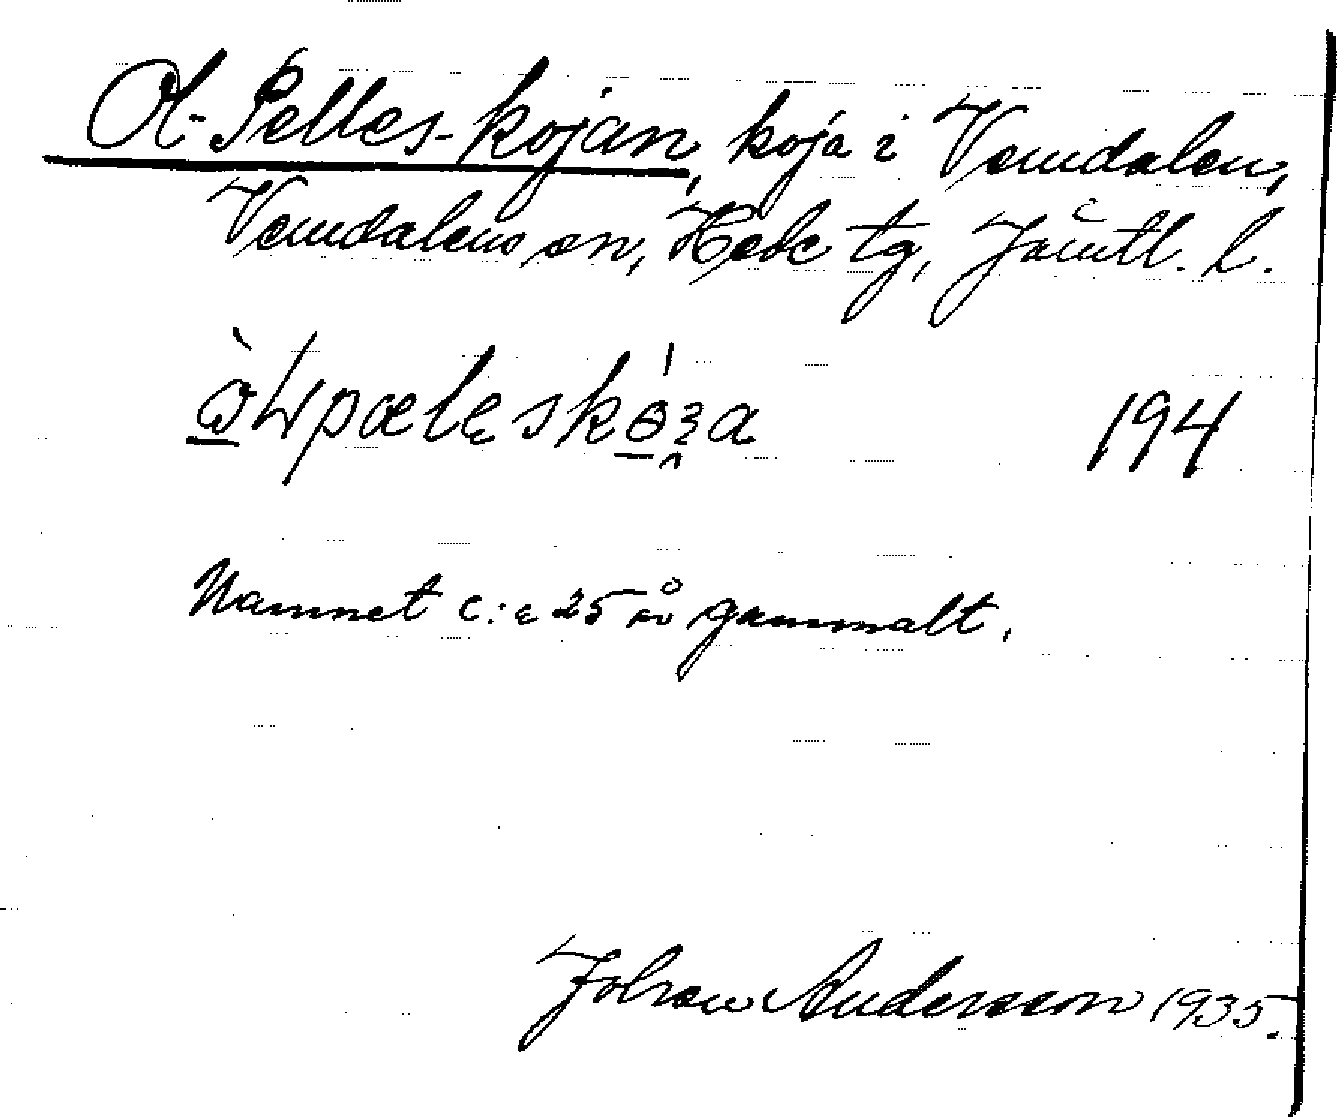 Ol-Pelles-kojan, koja i Vemdalen,
Vemdalens sn, Hede tg, Jämtl. l.
194
Namnet c:a 25 år gammalt.
Johan Andersson 1935.